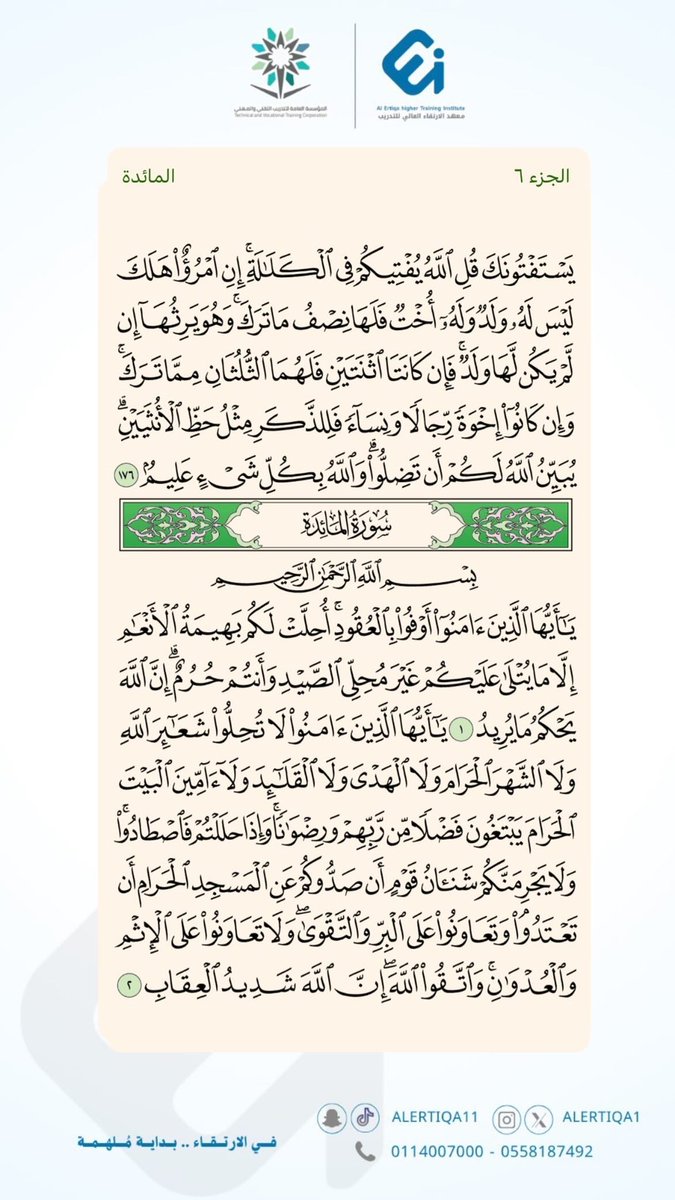 المؤسسة العامة للتدريب التقني والمهني
Technical and Vocational Training Corporation
Al Ertiqa higher Training Institute
معهد الارتقاء العالي للتدريب
الجزء ٦
المائدة
يَسْتَفْتُونَكَ قُلِ ٱللَّهُ يُفْتِيكُمْ فِى ٱلْكَلَٰلَةِ ۚ إِنِ ٱمْرُؤٌا۟ هَلَكَ
لَيْسَ لَهُۥ وَلَدٌ وَلَهُۥٓ أُخْتٌ فَلَهَا نِصْفُ مَا تَرَكَ ۚ وَهُوَ يَرِثُهَآ إِن
لَّمْ يَكُن لَّهَا وَلَدٌ ۚ فَإِن كَانَتَا ٱثْنَتَيْنِ فَلَهُمَا ٱلثُّلُثَانِ مِمَّا تَرَكَ ۚ
وَإِن كَانُوٓا۟ إِخْوَةً رِّجَالًا وَنِسَآءً فَلِلذَّكَرِ مِثْلُ حَظِّ ٱلْأُنثَيَيْنِ ۗ
يُبَيِّنُ ٱللَّهُ لَكُمْ أَن تَضِلُّوا۟ ۗ وَٱللَّهُ بِكُلِّ شَىْءٍ عَلِيمٌۢ ١٧٦
سُورَةُ المَائِدَةِ
بِسْمِ ٱللَّهِ ٱلرَّحْمَٰنِ ٱلرَّحِيمِ
يَٰٓأَيُّهَا ٱلَّذِينَ ءَامَنُوٓا۟ أَوْفُوا۟ بِٱلْعُقُودِ ۚ أُحِلَّتْ لَكُم بَهِيمَةُ ٱلْأَنْعَٰمِ
إِلَّا مَا يُتْلَىٰ عَلَيْكُمْ غَيْرَ مُحِلِّى ٱلصَّيْدِ وَأَنتُمْ حُرُمٌ ۗ إِنَّ ٱللَّهَ
يَحْكُمُ مَا يُرِيدُ ١ يَٰٓأَيُّهَا ٱلَّذِينَ ءَامَنُوا۟ لَا تُحِلُّوا۟ شَعَٰٓئِرَ ٱللَّهِ
وَلَا ٱلشَّهْرَ ٱلْحَرَامَ وَلَا ٱلْهَدْىَ وَلَا ٱلْقَلَٰٓئِدَ وَلَآ ءَآمِّينَ ٱلْبَيْتَ
ٱلْحَرَامَ يَبْتَغُونَ فَضْلًا مِّن رَّبِّهِمْ وَرِضْوَٰنًا ۚ وَإِذَا حَلَلْتُمْ فَٱصْطَادُوا۟ ۚ
وَلَا يَجْرِمَنَّكُمْ شَنَـَٔانُ قَوْمٍ أَن صَدُّوكُمْ عَنِ ٱلْمَسْجِدِ ٱلْحَرَامِ أَن
تَعْتَدُوا۟ ۘ وَتَعَاوَنُوا۟ عَلَى ٱلْبِرِّ وَٱلتَّقْوَىٰ ۖ وَلَا تَعَاوَنُوا۟ عَلَى ٱلْإِثْمِ
وَٱلْعُدْوَٰنِ ۚ وَٱتَّقُوا۟ ٱللَّهَ ۖ إِنَّ ٱللَّهَ شَدِيدُ ٱلْعِقَابِ ٢
ALERTIQA11
ALERTIQA1
في الارتقاء .. بداية مُلهمة
0114007000 - 0558187492